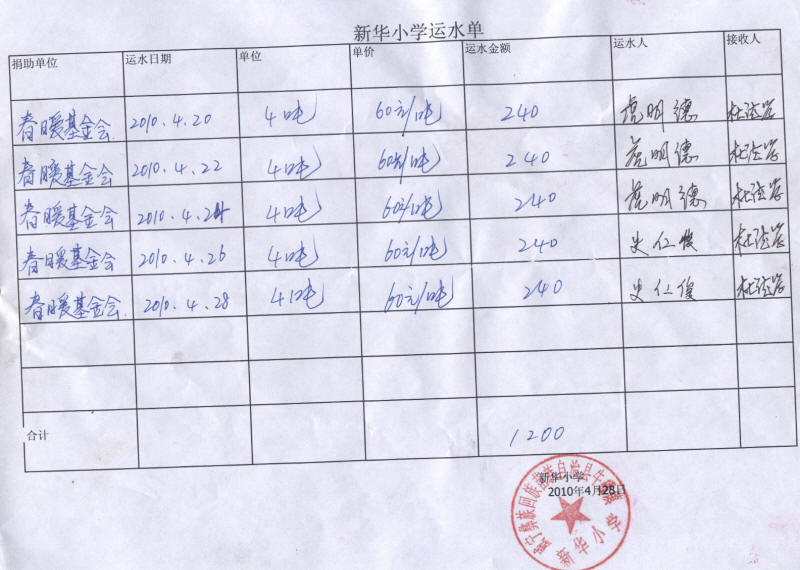 新华小学运水单
捐助单位 运水日期 单位 单价 运水金额 运水人 接收人
春暖基金会 2010.4.20 4吨 60元/吨 240 虎明德
春暖基金会 2010.4.22 4吨 60元/吨 240 虎明德
春暖基金会 2010.4.24 4吨 60元/吨 240 虎明德
春暖基金会 2010.4.26 4吨 60元/吨 240 史仁俊
春暖基金会 2010.4.28 4吨 60元/吨 240 史仁俊
合计 1200
新华小学
2010年4月28日
威宁彝族回族苗族自治县牛棚镇
新华小学